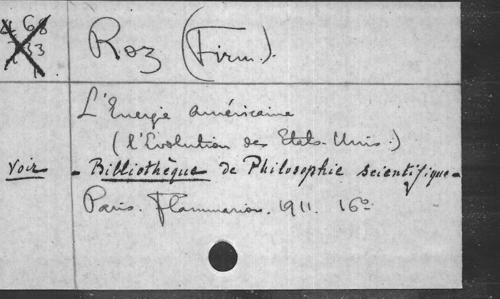 Roz (Firm.).
L'Energie américaine
(l'Evolution des Etats-Unis.)
Voir - Bibliothèque de Philosophie scientifique -
Paris. Flammarion. 1911. 16º